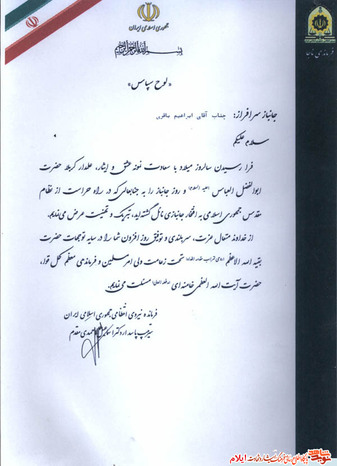 جمهوری اسلامی ایران
بسم الله الرحمن الرحیم
فرماندهی ناجا
«لوح سپاس»
جانباز سرافراز: جناب آقای ابراهیم باقری
سلام علیکم
فرا رسیدن سالروز میلاد با سعادت نمونه عشق و ایثار، علمدار کربلا حضرت
ابوالفضل العباس (علیه السلام) و روز جانباز را به جنابعالی که در راه حراست از نظام
مقدس جمهوری اسلامی به افتخار جانبازی نائل گشته‌اید، تبریک و تهنیت عرض می‌نمایم.
از خداوند متعال عزت، سربلندی و توفیق روز افزون شما را در سایه توجهات حضرت
بقیه الله الاعظم تحت زعامت ولی امر مسلمین و فرماندهی معظم کل قوا،
حضرت آیت الله العظمی خامنه‌ای مسئلت می‌نمایم.
فرمانده نیروی انتظامی جمهوری اسلامی ایران
سرتیپ پاسدار دکتر اسماعیل احمدی مقدم
ایلام